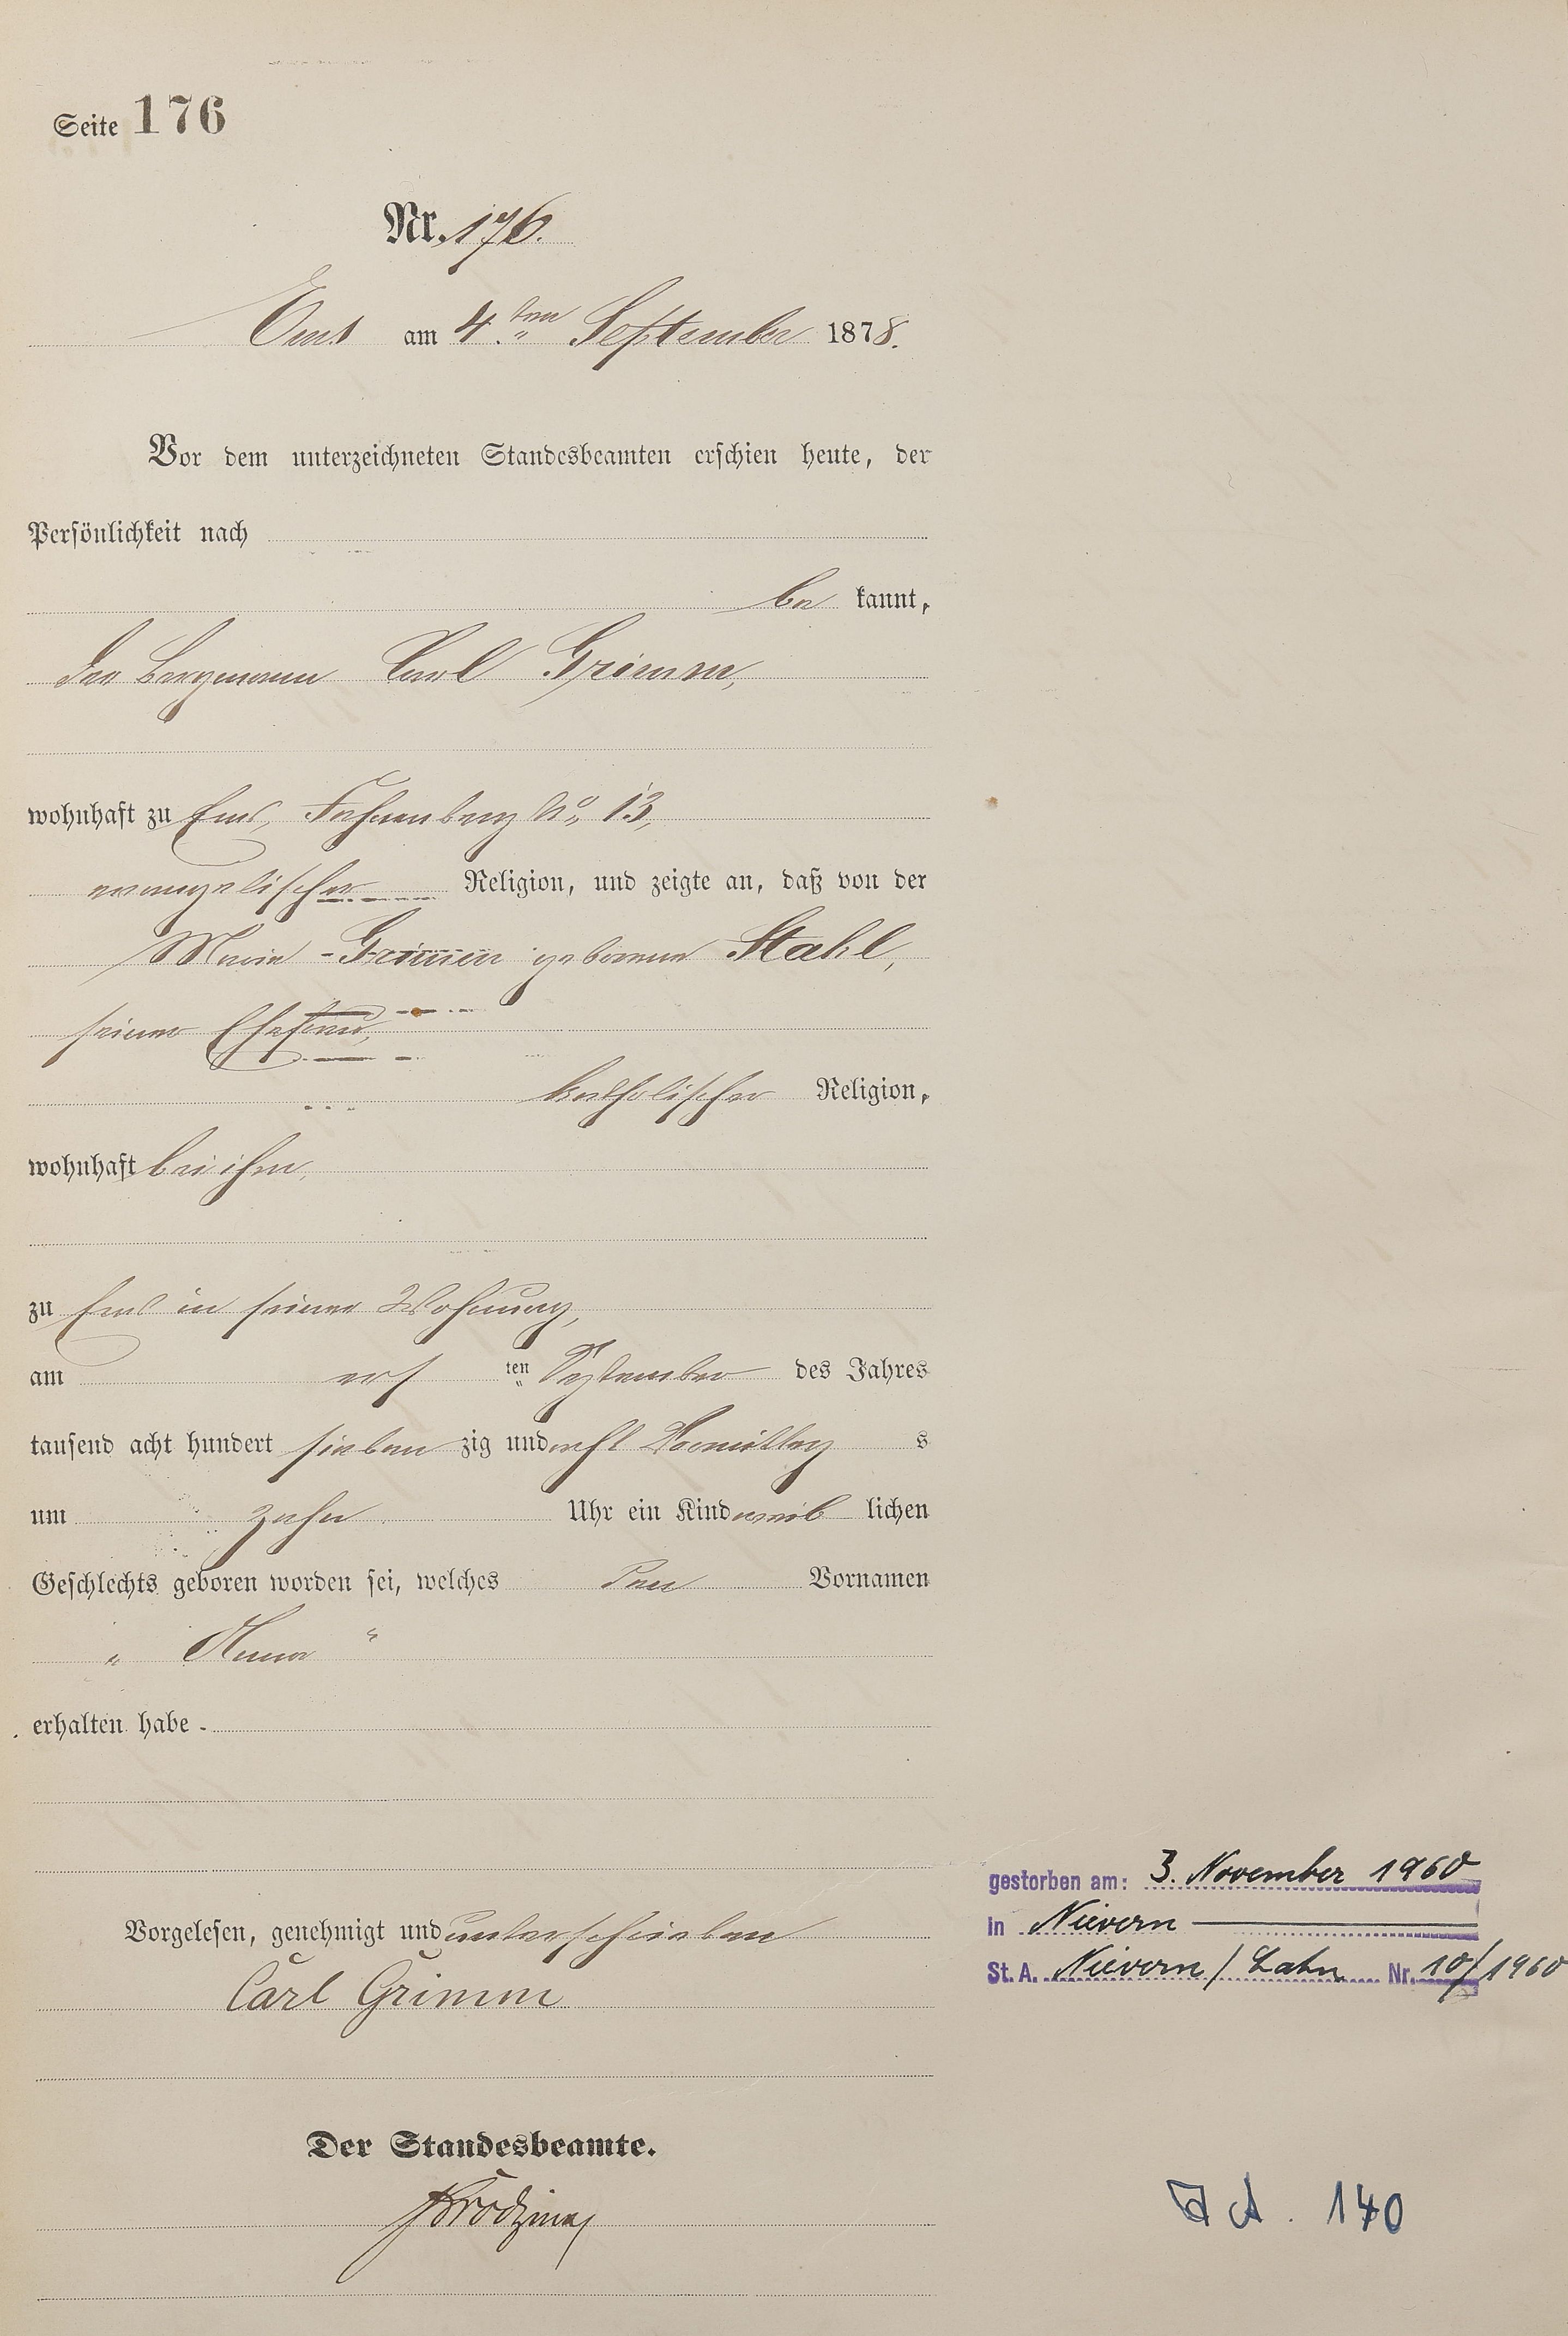 Seite 176
Nr. 176.
Ems am 4.ten September 1878.
Vor dem unterzeichneten Standesbeamten erschien heute, der
Persönlichkeit nach
be kannt,
der Bergmann Carl Grimm,
wohnhaft zu Ems, No. 13,
evangelischer Religion, und zeigte an, daß von der
Marie Grimm geborenen Stahl,
seiner Ehefrau,
katholischer Religion,
wohnhaft bei ihm,
zu Ems in seiner Wohnung,
am ersten September des Jahres
tausend acht hundert sieben zig und acht Vormittag s
um zehn Uhr ein Kind weib lichen
Geschlechts geboren worden sei, welches den Vornamen
„ Anna “
erhalten habe.
Vorgelesen, genehmigt und unterschrieben
Carl Grimm
Der Standesbeamte.
gestorben am: 3. November 1960
in Nievern
St. A. Nievern / Lahn Nr. 10/1960
140